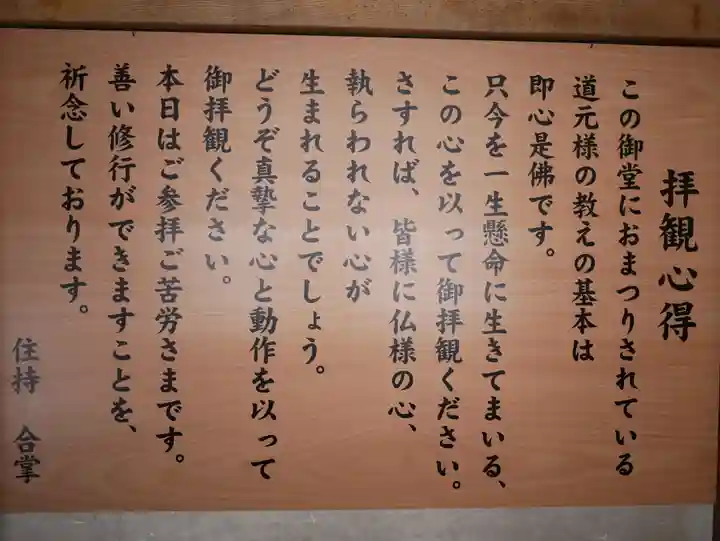 拝観心得
この御堂におまつりされている
道元様の教えの基本は
即心是佛です。
只今を一生懸命に生きてまいる、
この心を以って御拝観ください。
さすれば、皆様に仏様の心、
執らわれない心が
生まれることでしょう。
どうぞ真摯な心と動作を以って
御拝観ください。
本日はご参拝ご苦労さまです。
善い修行ができますことを、
祈念しております。
住持 合掌